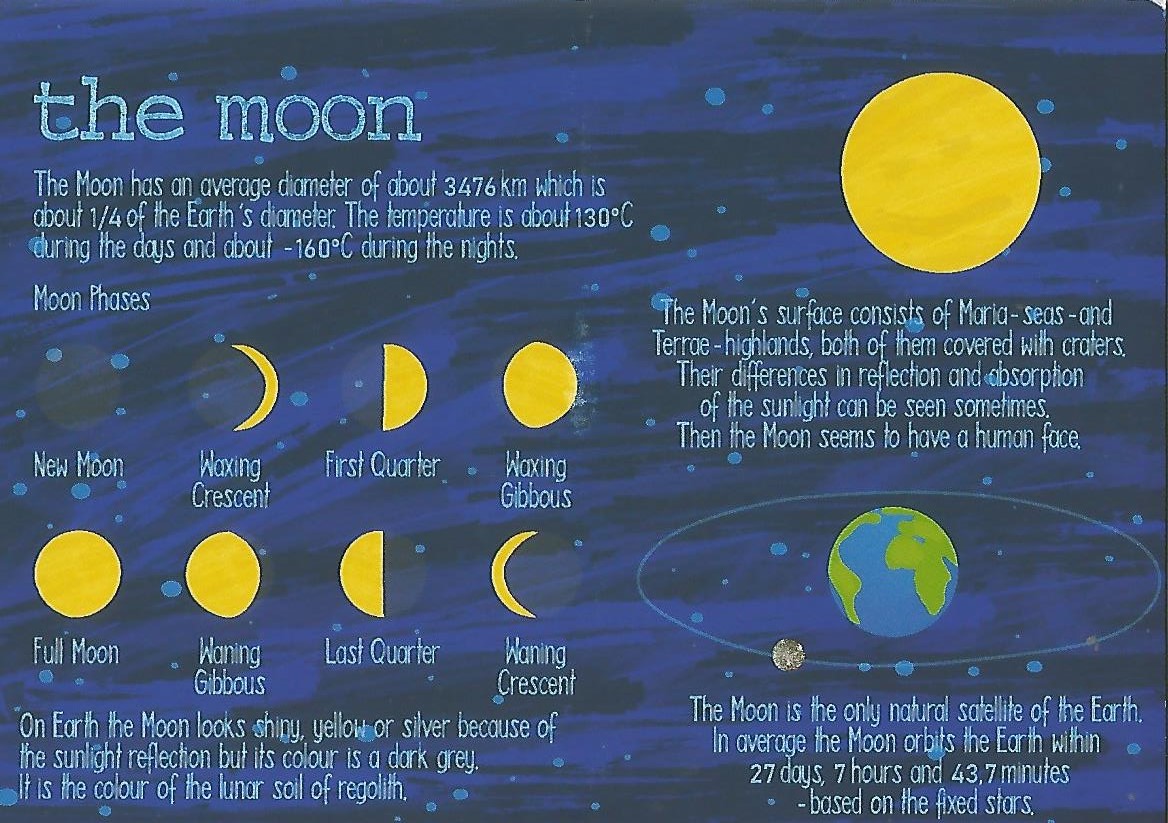 the moon
The Moon has an average diameter of about 3476 km which is
about 1/4 of the Earth´s diameter. The temperature is about 130°C
during the days and about -160°C during the nights.
Moon Phases
New Moon
Waxing
Crescent
First Quarter
Waxing
Gibbous
Full Moon
Waning
Gibbous
Last Quarter
Waning
Crescent
On Earth the Moon looks shiny, yellow or silver because of
the sunlight reflection but its colour is a dark grey.
It is the colour of the lunar soil of regolith.
The Moon´s surface consists of Maria-seas-and
Terrae-highlands, both of them covered with craters.
Their differences in reflection and absorption
of the sunlight can be seen sometimes.
Then the Moon seems to have a human face.
The Moon is the only natural satellite of the Earth.
In average the Moon orbits the Earth within
27 days, 7 hours and 43,7 minutes
-based on the fixed stars.